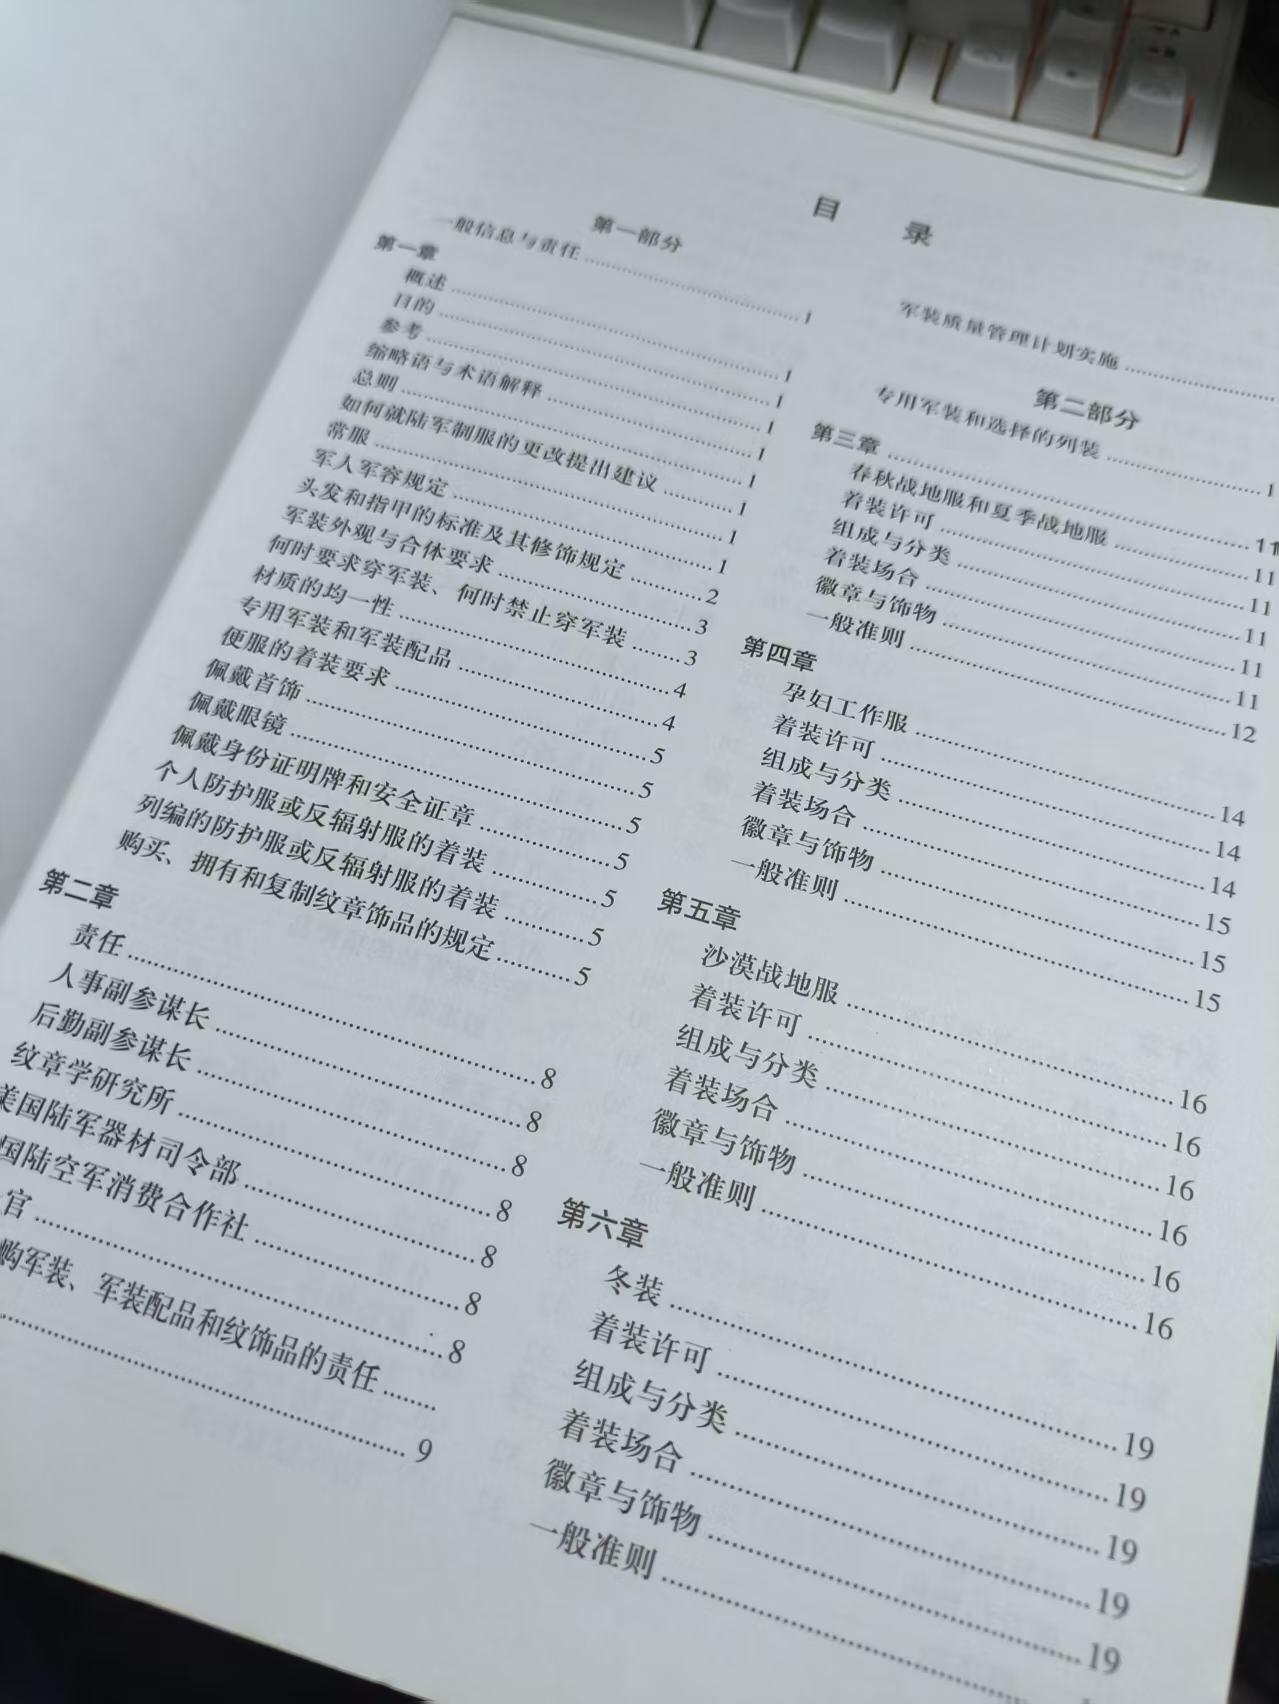 目 录
第一部分
一般信息与责任……1
第一章
概述……1
目的……1
参考……1
缩略语与术语解释……1
总则……1
如何就陆军制服的更改提出建议……1
常服……1
军人军容规定……1
头发和指甲的标准及其修饰规定……2
军装外观与合体要求……3
何时要求穿军装、何时禁止穿军装……3
材质的均一性……4
专用军装和军装配品……4
便服的着装要求……5
佩戴首饰……5
佩戴眼镜……5
佩戴身份证明牌和安全证章……5
个人防护服或反辐射服的着装……5
列编的防护服或反辐射服的着装……5
购买、拥有和复制纹章饰品的规定……5
第二章
责任……8
人事副参谋长……8
后勤副参谋长……8
纹章学研究所……8
美国陆军器材司令部……8
国陆空军消费合作社……8
官……8
购军装、军装配品和纹饰品的责任……
……9
军装质量管理计划实施……
第二部分
专用军装和选择的列装……
第三章
春秋战地服和夏季战地服……11
着装许可……11
组成与分类……11
着装场合……11
徽章与饰物……11
一般准则……12
第四章
孕妇工作服……14
着装许可……14
组成与分类……14
着装场合……15
徽章与饰物……15
一般准则……15
第五章
沙漠战地服……16
着装许可……16
组成与分类……16
着装场合……16
徽章与饰物……16
一般准则……16
第六章
冬装……19
着装许可……19
组成与分类……19
着装场合……19
徽章与饰物……19
一般准则……